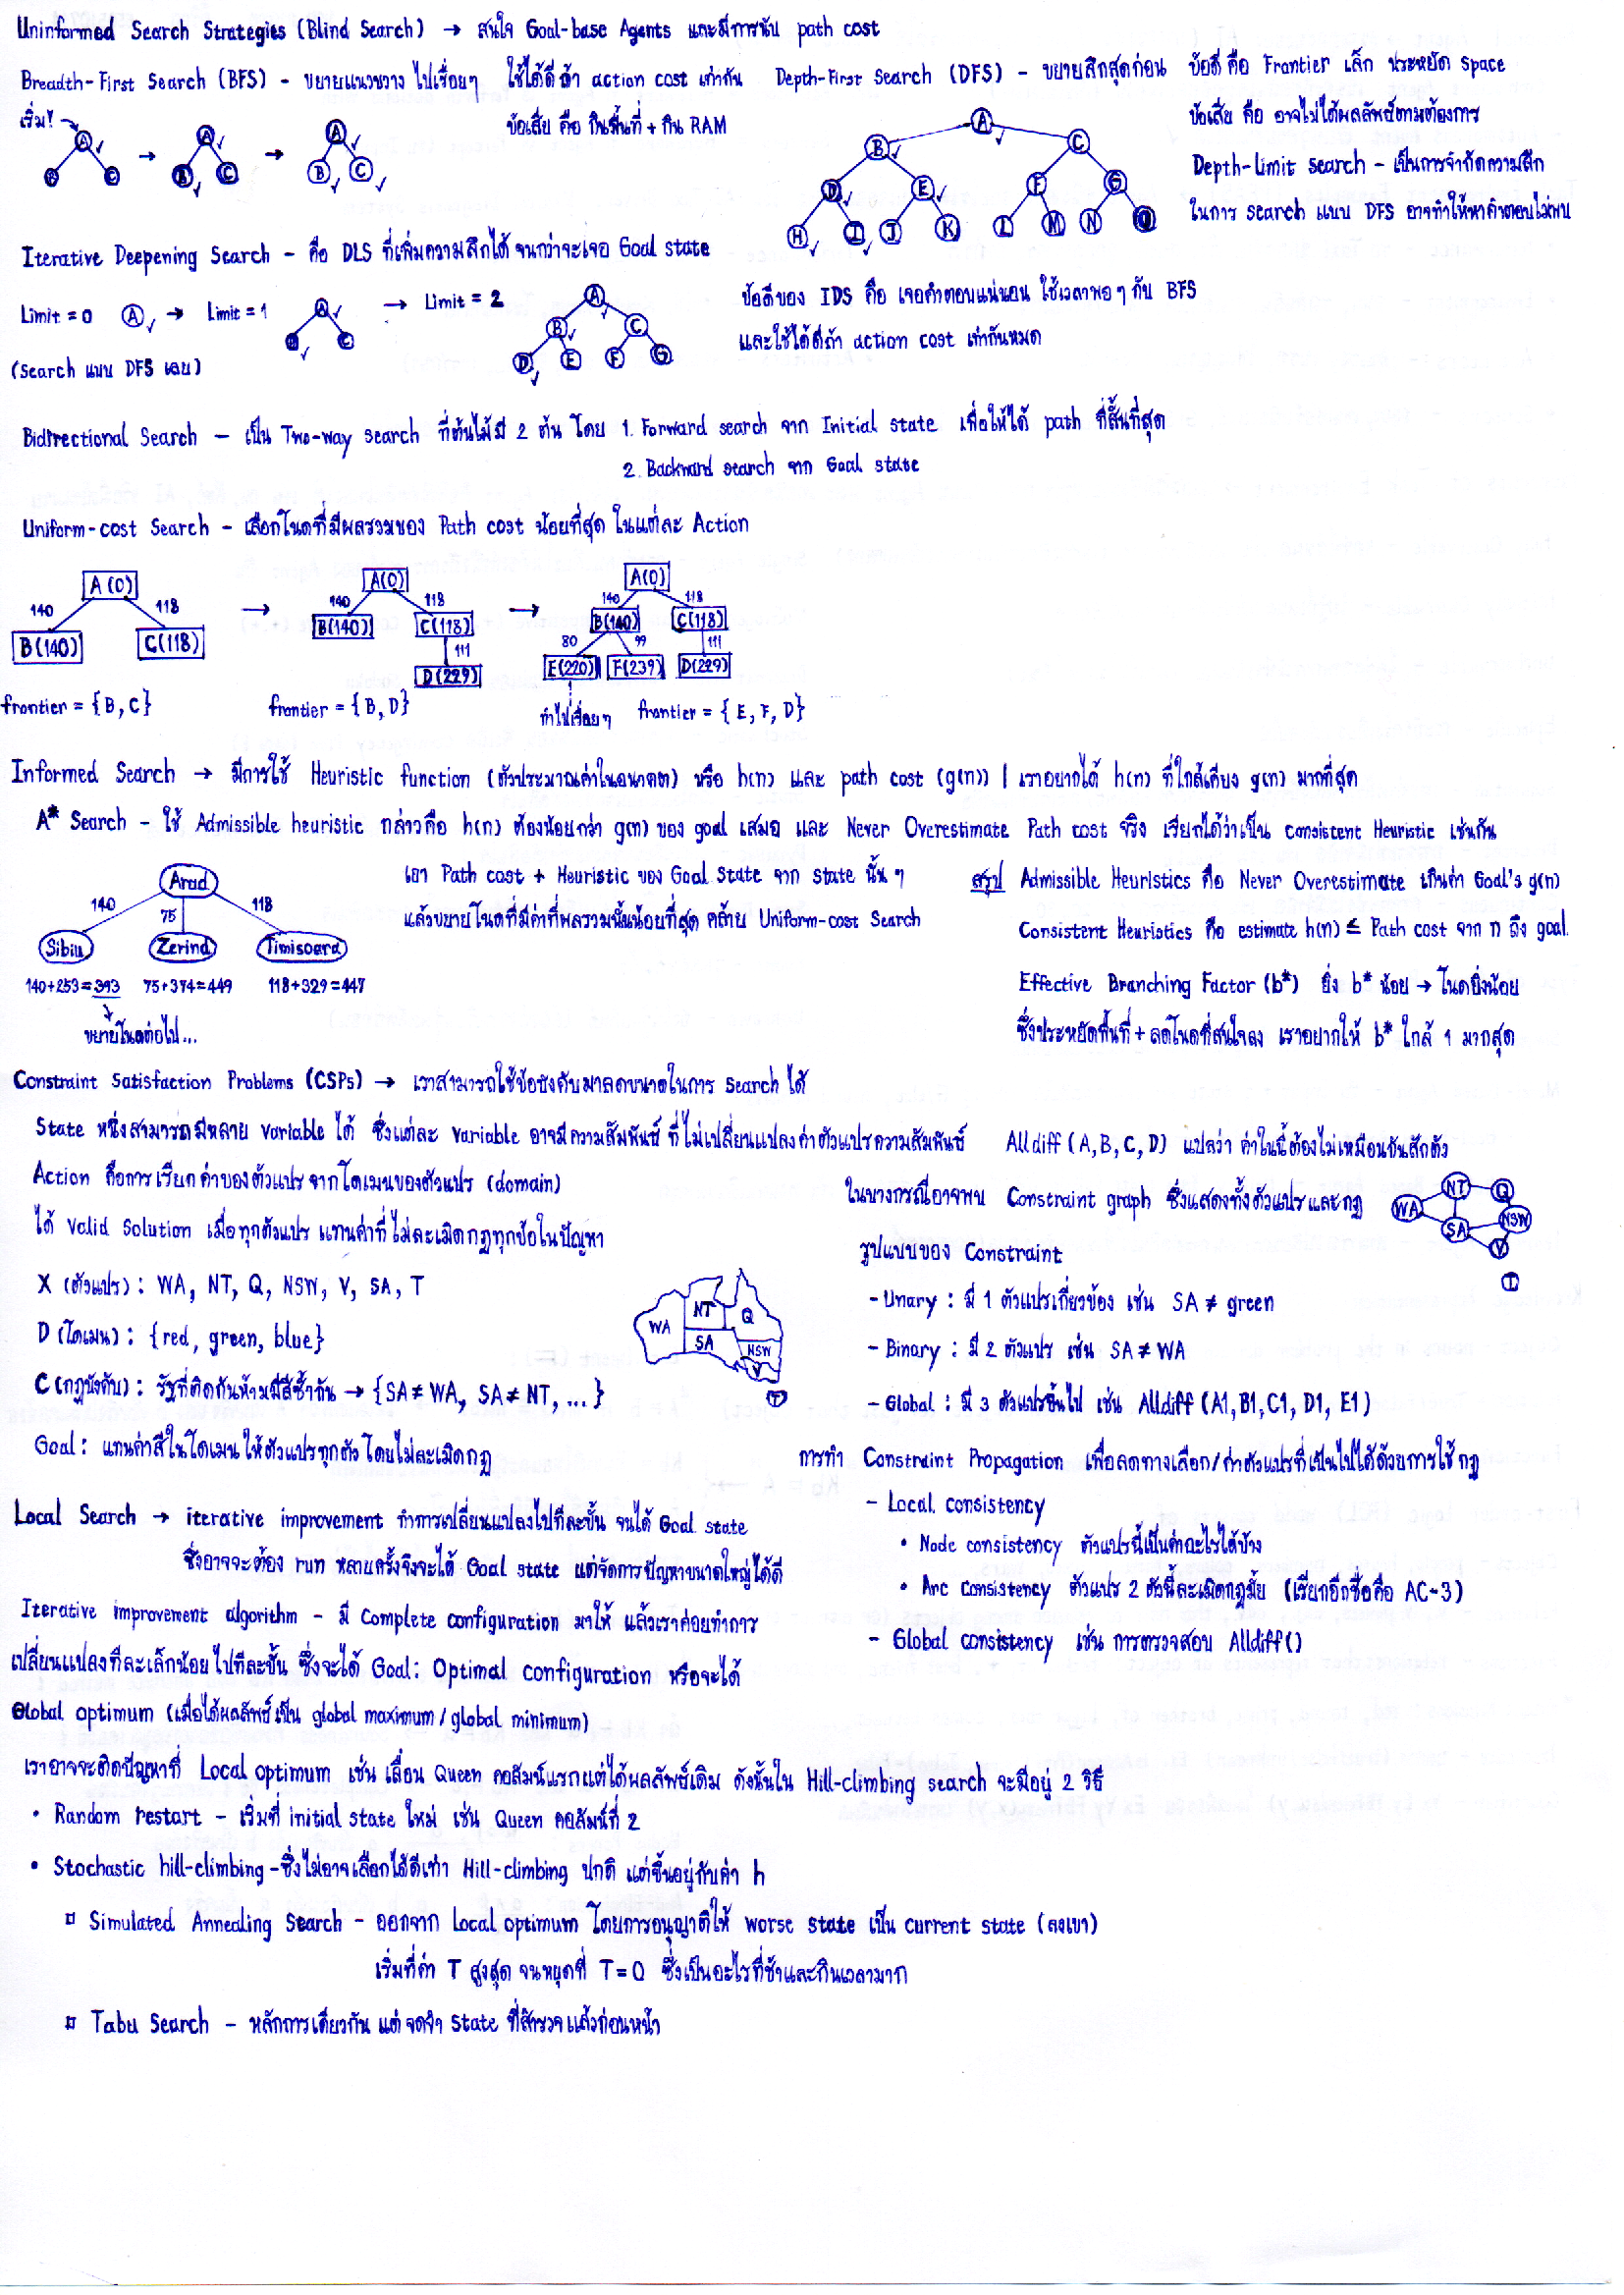 Uninformed Search Strategies (Blind Search) → สนใจ Goal-base Agents และมีการนับ path cost
Breadth-First Search (BFS) - ขยายแนวขวาง ไปเรื่อยๆ ใช้ได้ดีถ้า action cost เท่ากัน
ข้อเสีย คือ กินพื้นที่ + กิน RAM
เริ่ม!
A
→ A B C
→ A B C
Depth-First Search (DFS) - ขยายลึกสุดก่อน ข้อดี คือ Frontier เล็ก ประหยัด Space
ข้อเสีย คือ อาจไม่ได้ผลลัพธ์ตามต้องการ
Depth-limit Search - เป็นการจำกัดความลึก
ในการ search แบบ DFS อาจทำให้หาคำตอบไม่พบ
A
B C
D E F G
H I J K L M N O
Iterative Deepening Search - คือ DLS ที่เพิ่มความลึกได้ จนกว่าจะเจอ Goal state
Limit = 0 A → Limit = 1 A B C → Limit = 2 A
B C
D E F G
(Search แบบ DFS เลย)
ข้อดีของ IDS คือ เจอคำตอบแน่นอน ใช้เวลาพอๆ กับ BFS
และใช้ได้ดีถ้า action cost เท่ากันหมด
Bidirectional Search - เป็น Two-way search ที่ต้นไม้มี 2 ต้น โดย 1. Forward search จาก Initial state เพื่อให้ได้ path ที่สั้นที่สุด
2. Backward search จาก Goal state
Uniform-cost Search - เลือกโนดที่มีผลรวมของ Path cost น้อยที่สุด ในแต่ละ Action
A(0)
140 118
B(140) C(118)
frontier = {B, C}
→ A(0)
140 118
B(140) C(118)
111
D(229)
frontier = {B, D}
→ A(0)
140 118
B(140) C(118)
80 99 111
E(220) F(239) D(229)
ทำไปเรื่อยๆ frontier = {E, F, D}
Informed Search → มีการใช้ Heuristic function (ตัวประมาณค่าในอนาคต) หรือ h(n) และ path cost (g(n)) | เราอยากได้ h(n) ที่ใกล้เคียง g(n) มากที่สุด
A* Search - ใช้ Admissible heuristic กล่าวคือ h(n) ต้องน้อยกว่า g(n) ของ goal เสมอ และ Never Overestimate Path cost จริง เรียกได้ว่าเป็น consistent Heuristic เช่นกัน
Arad
140 75 118
Sibiu Zerind Timisoara
140+253=393 75+374=449 118+329=447
ขยายโนดต่อไป...
เอา Path cost + Heuristic ของ Goal State จาก state นั้นๆ
แล้วขยายโนดที่มีค่าที่ผลรวมนั้นน้อยที่สุด คล้าย Uniform-cost Search
สรุป Admissible Heuristics คือ Never Overestimate เกินค่า Goal's g(n)
Consistent Heuristics คือ estimate h(n) ≤ Path cost จาก n ถึง goal.
Effective Branching Factor (b*) ยิ่ง b* น้อย → โนดยิ่งน้อย
ซึ่งประหยัดพื้นที่ + ลดโนดที่สนใจลง เราอยากให้ b* ใกล้ 1 มากสุด
Constraint Satisfaction Problems (CSPs) → เราสามารถใช้ข้อบังคับมาลดขนาดในการ Search ได้
State หนึ่งสามารถมีหลาย Variable ได้ ซึ่งแต่ละ Variable อาจมีความสัมพันธ์ ที่ไม่เปลี่ยนแปลงค่าตัวแปรความสัมพันธ์
Alldiff (A, B, C, D) แปลว่า ค่าในนี้ต้องไม่เหมือนกันสักตัว
Action คือการเรียกค่าของตัวแปร จากโดเมนของตัวแปร (domain)
ได้ Valid Solution เมื่อทุกตัวแปร แทนค่าที่ไม่ละเมิดกฎทุกข้อในปัญหา
X (ตัวแปร) : WA, NT, Q, NSW, V, SA, T
D (โดเมน) : {red, green, blue}
C (กฎบังคับ) : รัฐที่ติดกันห้ามมีสีซ้ำกัน → {SA ≠ WA, SA ≠ NT, ...}
Goal : แทนค่าสีในโดเมน ให้ตัวแปรทุกตัว โดยไม่ละเมิดกฎ
WA NT Q SA NSW V T
ในบางกรณีอาจพบ Constraint graph ซึ่งแสดงทั้งตัวแปรและกฎ
WA NT Q SA NSW V T
รูปแบบของ Constraint
- Unary : มี 1 ตัวแปรเกี่ยวข้อง เช่น SA ≠ green
- Binary : มี 2 ตัวแปร เช่น SA ≠ WA
- Global : มี 3 ตัวแปรขึ้นไป เช่น Alldiff (A1, B1, C1, D1, E1)
การทำ Constraint Propagation เพื่อลดทางเลือก/ค่าตัวแปรที่เป็นไปได้ด้วยการใช้กฎ
- Local consistency
• Node consistency ตัวแปรนี้เป็นค่าอะไรได้บ้าง
• Arc Consistency ตัวแปร 2 ตัวนี้ละเมิดกฎมั้ย (เรียกอีกชื่อคือ AC-3)
- Global consistency เช่น การตรวจสอบ Alldiff()
Local Search → iterative improvement ทำการเปลี่ยนแปลงไปทีละขั้น จนได้ Goal state
ซึ่งอาจจะต้อง run หลายครั้งจึงจะได้ Goal state แต่จัดการปัญหาขนาดใหญ่ได้ดี
Iterative improvement algorithm - มี Complete configuration มาให้ แล้วเราค่อยทำการ
เปลี่ยนแปลงทีละเล็กน้อย ไปทีละขั้น ซึ่งจะได้ Goal: Optimal configuration หรือจะได้
Global optimum (เมื่อได้ผลลัพธ์เป็น global maximum / global minimum)
เราอาจจะติดปัญหาที่ Local optimum เช่น เลื่อน Queen คอลัมน์แรกแต่ได้ผลลัพธ์เดิม ดังนั้นใน Hill-climbing search จะมีอยู่ 2 วิธี
• Random restart - เริ่มที่ initial state ใหม่ เช่น Queen คอลัมน์ที่ 2
• Stochastic hill-climbing - ซึ่งไม่อาจเลือกได้ดีเท่า Hill-climbing ปกติ แต่ขึ้นอยู่กับค่า h
Simulated Annealing Search - ออกจาก Local optimum โดยการอนุญาติให้ worse state เป็น current state (ลงเขา)
เริ่มที่ค่า T สูงสุด จนหยุดที่ T=0 ซึ่งเป็นอะไรที่ช้าและกินเวลามาก
Tabu Search - หลักการเดียวกัน แต่ จดจำ State ที่สำรวจแล้วก่อนหน้า